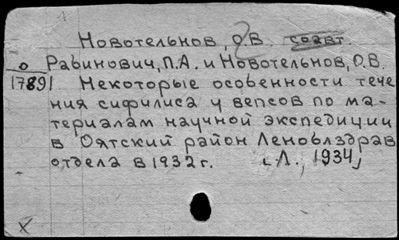 Новотельнов, О.В. соавт.
о Рабинович, П.А. и Новотельнов, О.В.
17891 Некоторые особенности тече
ния сифилиса у вепсов по ма-
териалам научной экспедиции
в Оятский район Леноблздрав
отдела в 1932 г. (Л., 1934)
X